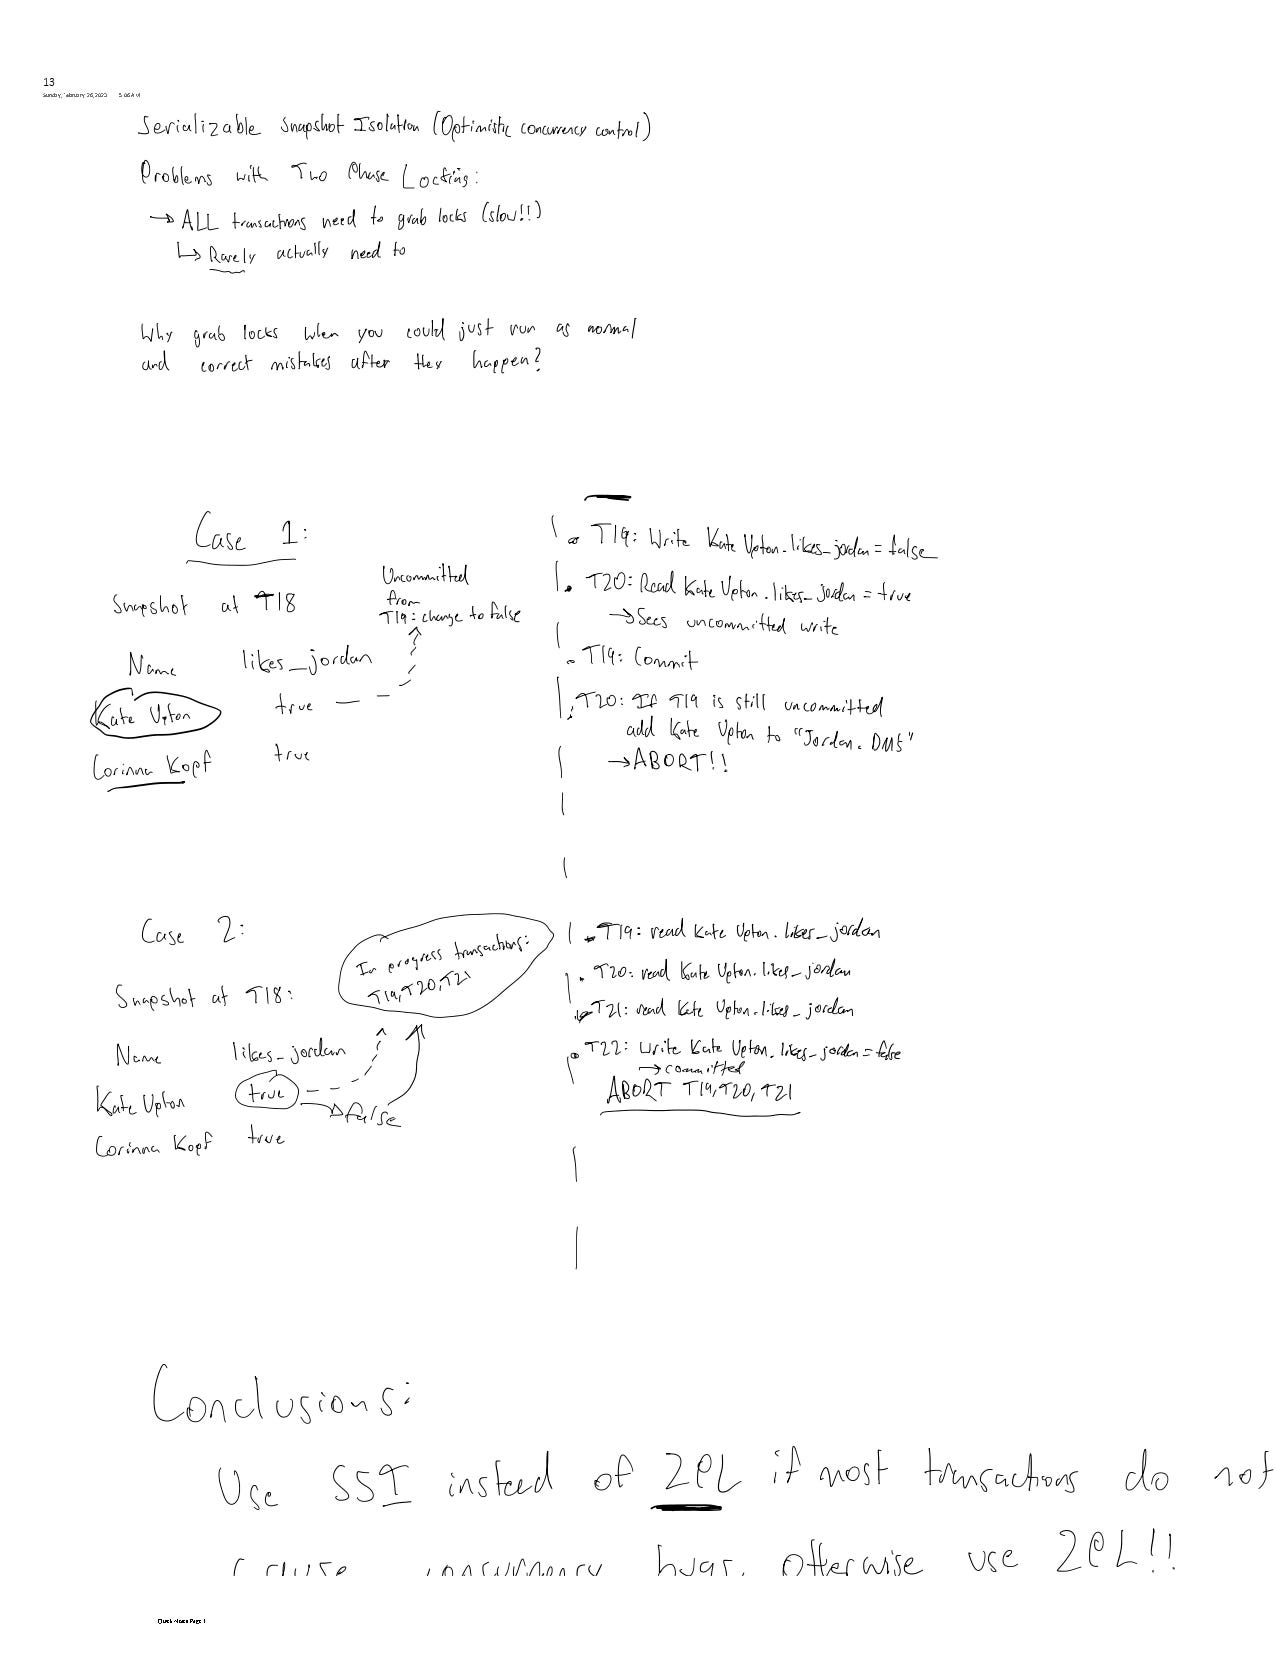 13
Sunday, February 26, 2023
Serializable Snapshot Isolation (Optimistic concurrency control)
Problems with Two Phase Locking:
→ ALL transactions need to grab locks (slow!!)
↳ Rarely actually need to
Why grab locks when you could just run as normal
and correct mistakes after they happen?
Case 1:
Snapshot at T18
Uncommitted
from
T19: change to false
Name likes_jordan
Kate Upton true
Corinna Kopf true
T19: Write Kate Upton.likes_jordan = false
T20: Read Kate Upton.likes_jordan = true
→ Sees uncommitted write
T19: Commit
T20: If T19 is still uncommitted
add Kate Upton to "Jordan.DMs"
→ ABORT!!
Case 2:
In progress transactions:
T19, T20, T21
Snapshot at T18:
Name likes_jordan
Kate Upton true → false
Corinna Kopf true
T19: read Kate Upton.likes_jordan
T20: read Kate Upton.likes_jordan
T21: read Kate Upton.likes_jordan
T22: Write Kate Upton.likes_jordan = false
→ committed
ABORT T19, T20, T21
Conclusions:
Use SSI instead of 2PL if most transactions do not
cause concurrency bugs, otherwise use 2PL!!
Quick Notes Page 1